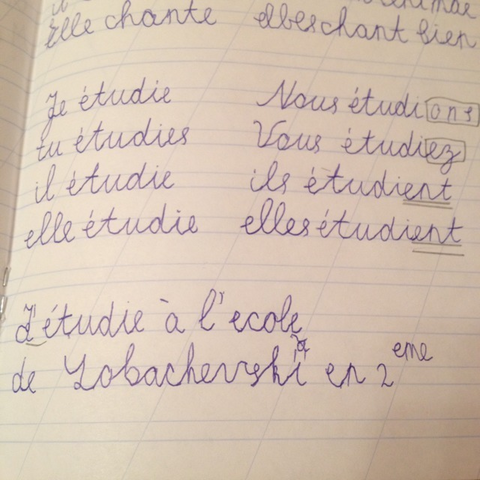 elle chante elleschant bien
Je étudie Nous étudions
tu étudies Vous étudiez
il étudie ils étudient
elle étudie elles étudient
J'étudie à l'ecole
de Lobachevski en 2 eme